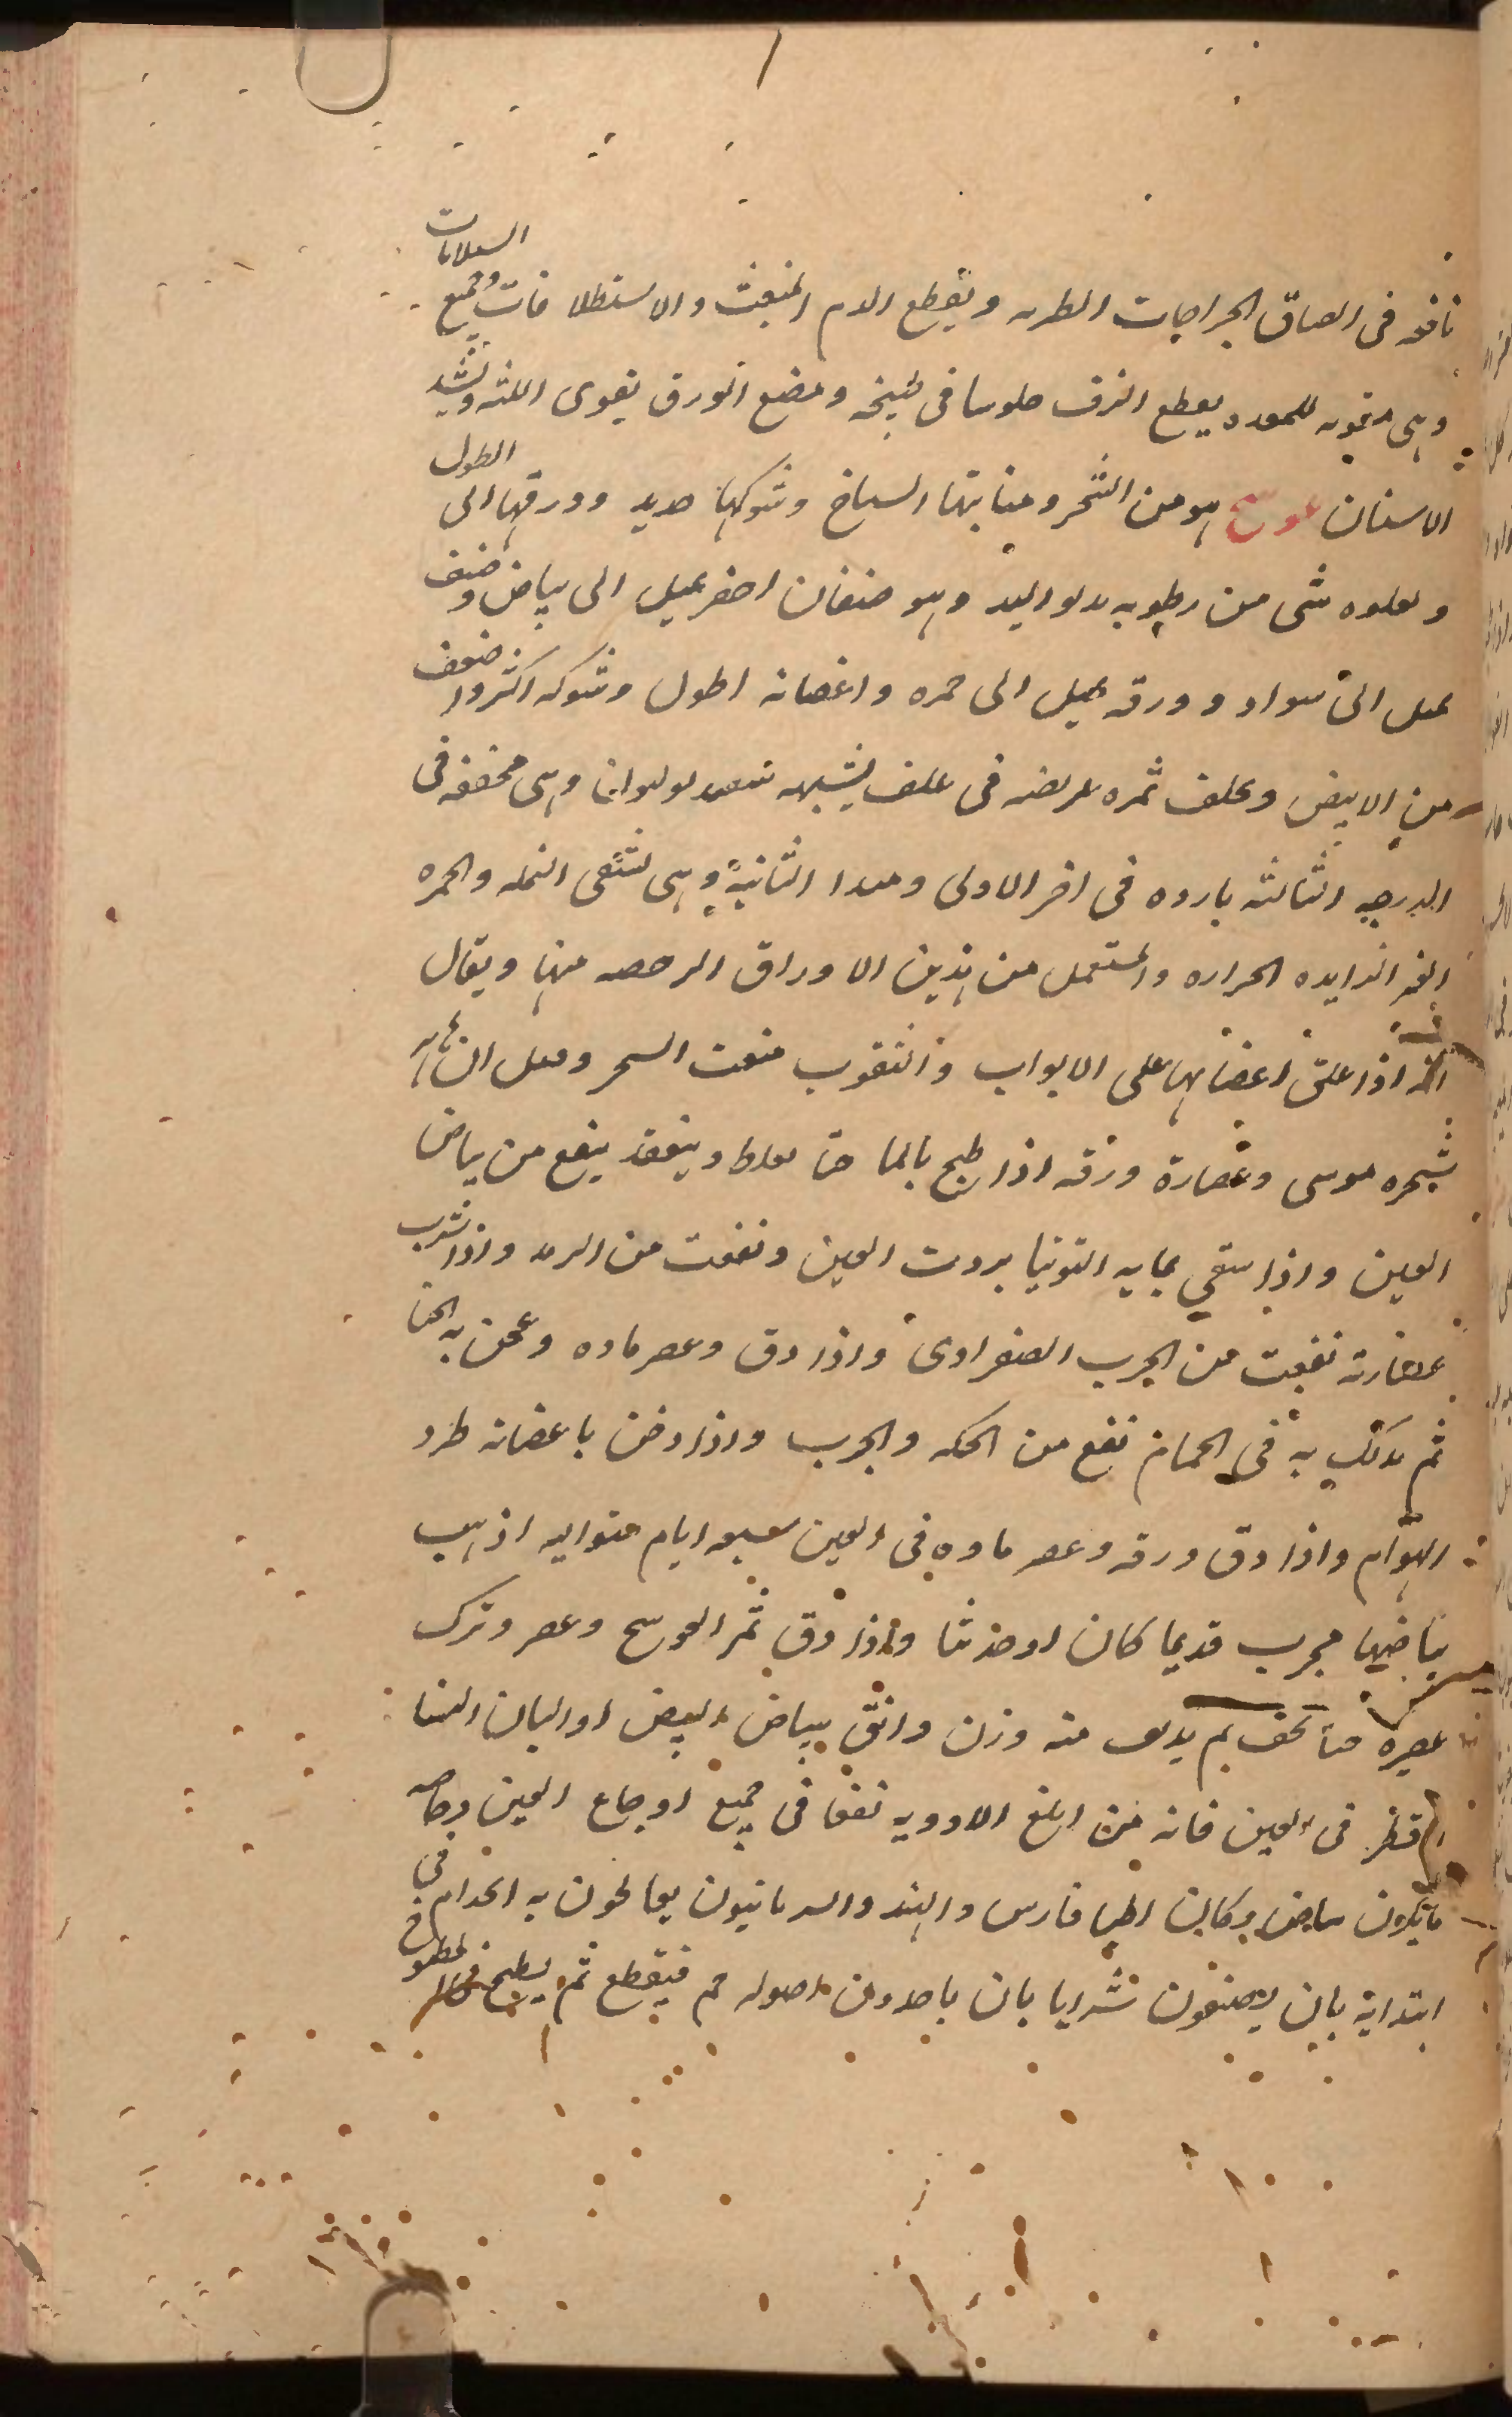 نافعه فى الصاق الجراحات الطريه ويقطع الدم المنبعث والاستطلاقات وجميع السيلانات
وهى مقويه للمعده يعطع النزف جلوسا فى طبيخه ومضغ الورق يقوى اللثه ويشد
الاسنان عوسج هو من الشجر ومنابتها السباخ وشوكها حديد وورقها الى الطول
ويعلوه شى من رطوبه اليد وهو صنفان اخضر يميل الى بياض وصنف
يميل الى سواد وورقه يميل الى حمره واغصانه اطول وشوكه اكثر واضعف
من الابيض ويخلف ثمره عريضه فى غلف يشبه وهى مجففه فى
الدرجه الثالثه بارده فى اخر الاولى ومبدا الثانية وهى تشفى النمله والحمره
الغير الزايده الحراره والمستعمل من هذين الاوراق الرخصه منها ويقال
انه اذا علق اغصانها على الابواب والنقوب منعت السحر وقيل انها
شجره موسى وعصارة ورقه اذا طبخ بالما حتا يغلظ وينعقد ينفع من بياض
العين واذا سقي بمايه التوتيا بردت العين ونفعت من الرمد واذا شرب
عصارته نفعت من الجرب الصفراوى واذا دق وعصر ماوه وعجن به الحنا
ثم تدلك به فى الحمام نفع من الحكه والجرب واذا دخن باغصانه طرد
الهوام واذا دق ورقه وعصر ماوه فى العين سبعه ايام متواليه اذهب
بياضها مجرب قديما كان او حديثا واذا دق ثمر العوسج وعصر وترك
عصيره حتا يجف ثم يداف منه وزن دانق ببياض البيض او البان النسا
ثم قطر فى العين فانه من ابلغ الادويه نفعا فى جميع اوجاع العين وخاصه
ما يكون بياض وكان اطبا فارس والهند والسريانيون يعالجون به الجذام فى
ابتدايه بان يصنفون شرابا بان ياخذون اصوله ثم فيقطع ثم يطبخ